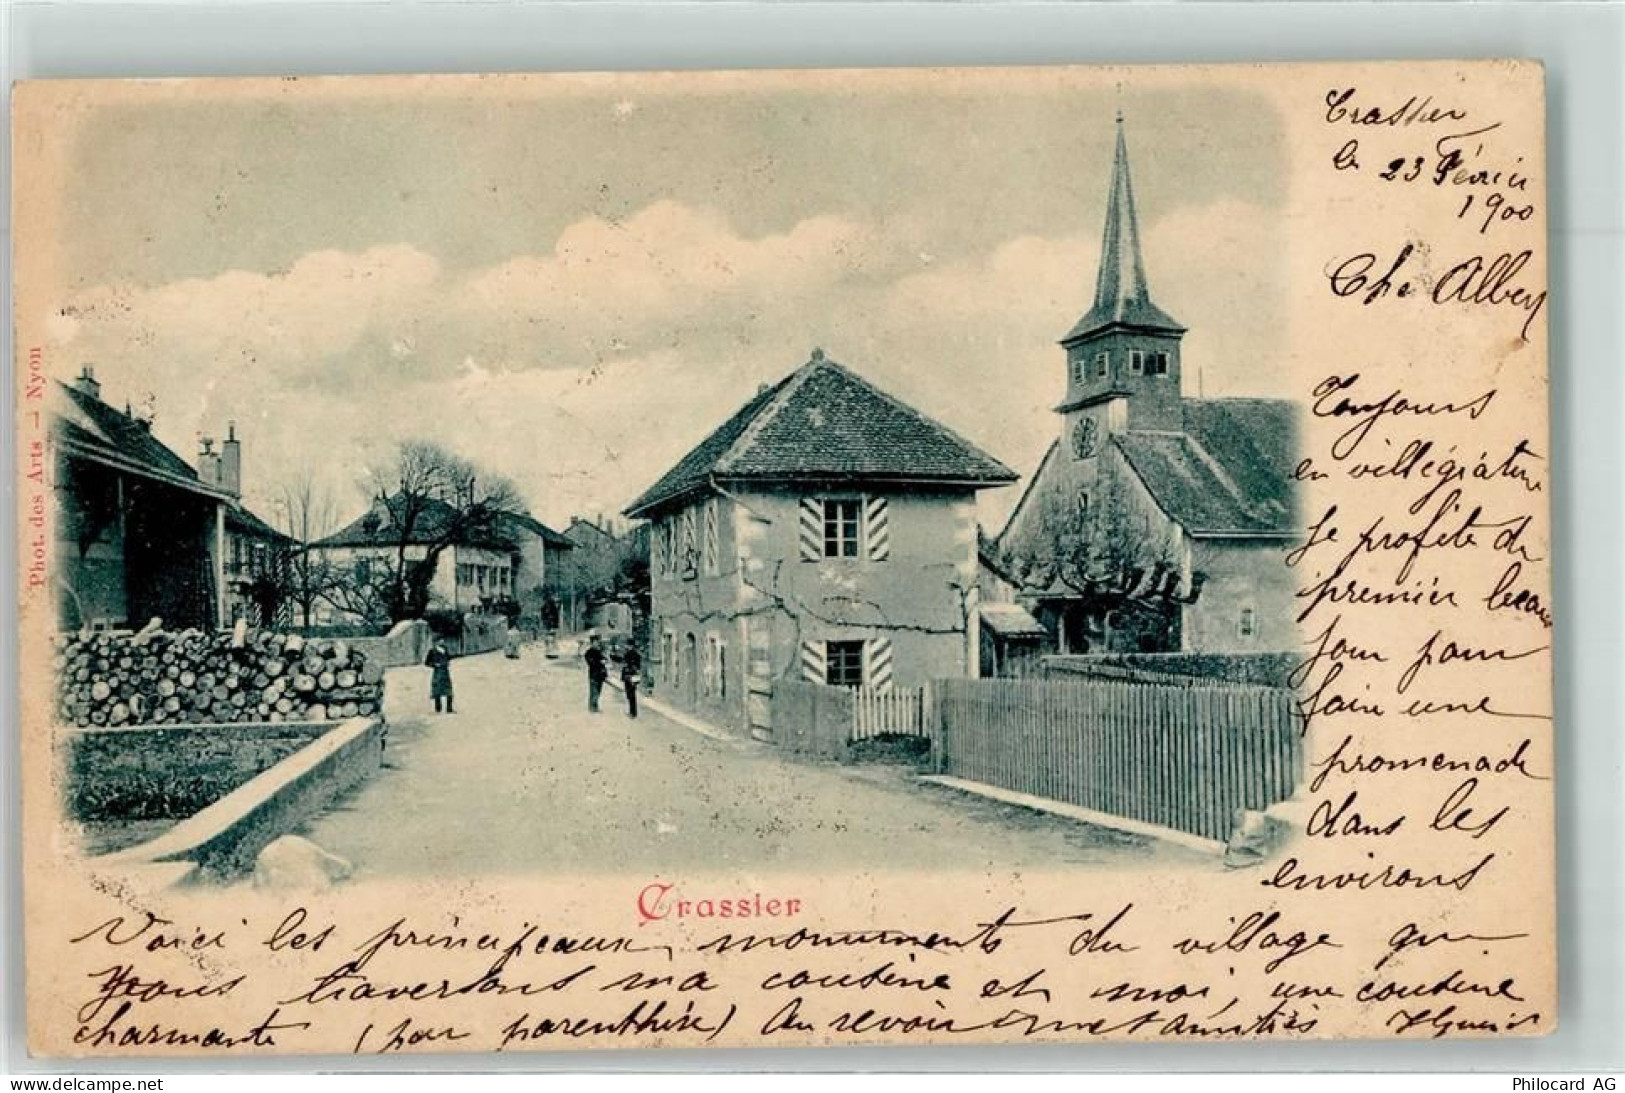 Crassier
le 23 Février
1900
Cher Albert
Toujours
en villégiature
Je profite du
premier beau
jour pour
faire une
promenade
dans les
environs
Voici les principeaux monuments du village que
nous traversons ma cousine et moi, une cousine
charmante (par parenthèse) Au revoir amitiés
Crassier
Phot. des Arts — Nyon
delcampe.net
Philocard AG